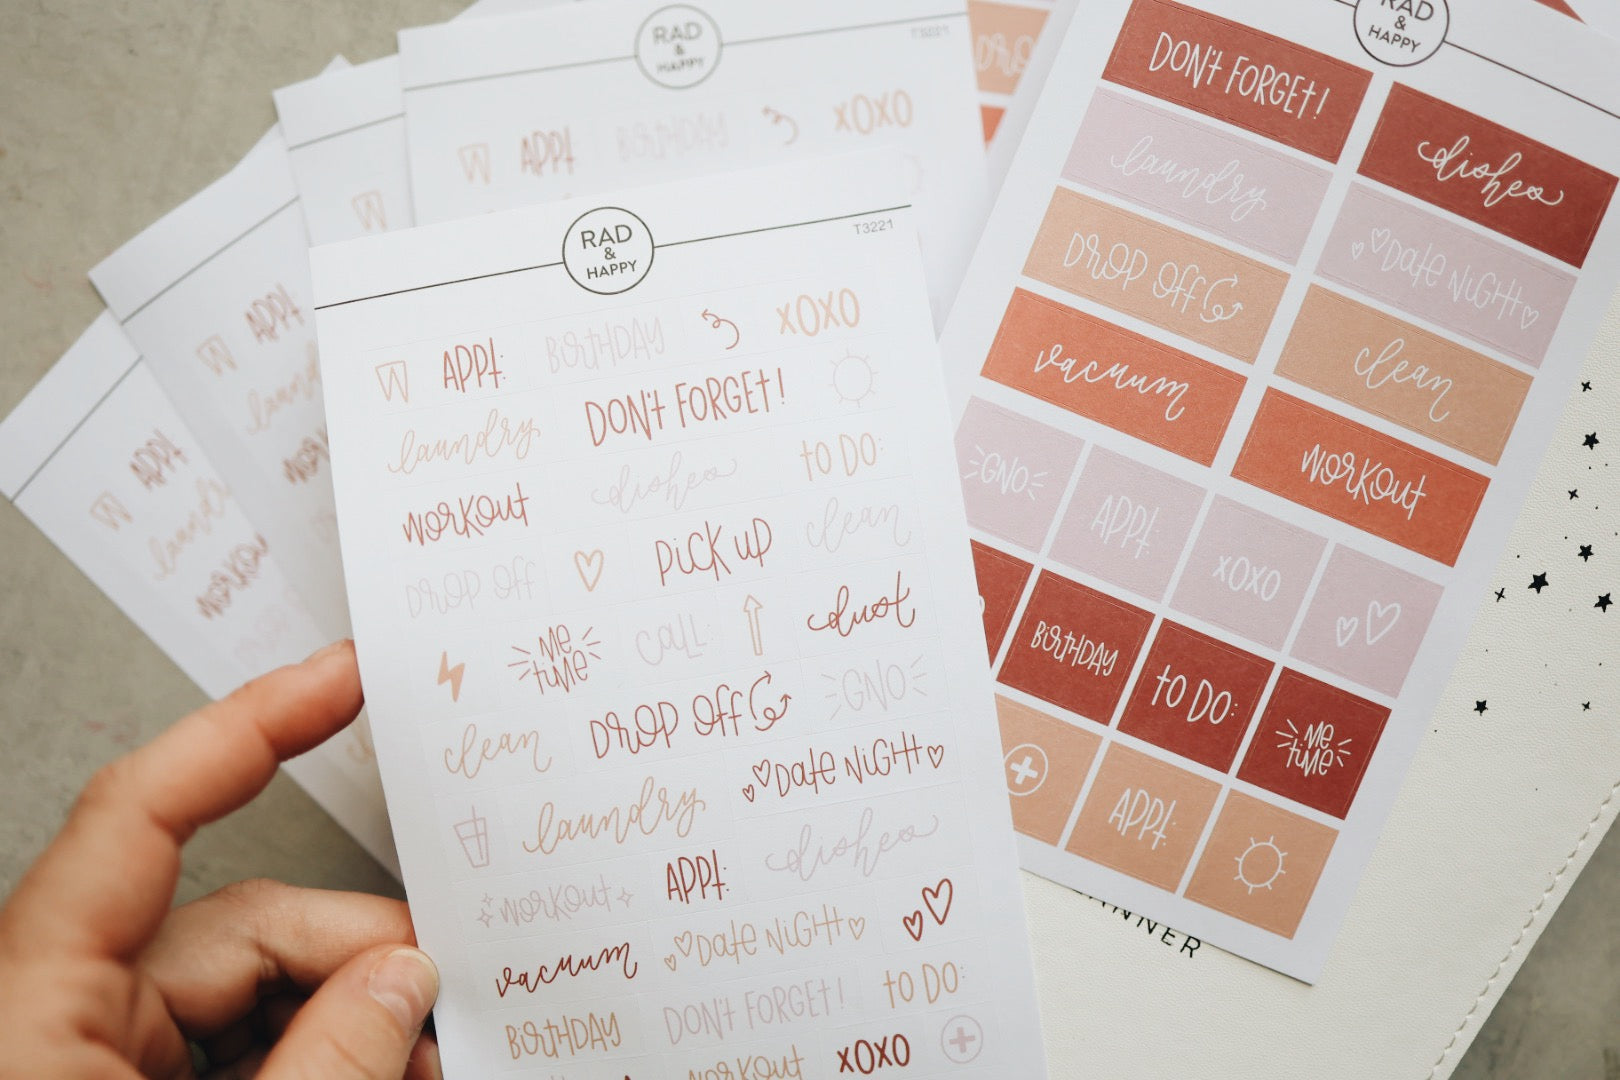 RAD
&
HAPPY
T3221
APPt:
BiRtHDAY
xOXO
RAD
&
HAPPY
T3221
APPt:
BiRtHDAY
xOXO
laundry
DON't FORGEt!
workout
dishes
tO DO:
DROP Off
PiCK UP
clean
ME
tiME
CALL:
dust
clean
DROP Off
GNO
laundry
DAtE NiGHt
workout
APPt:
dishes
vacuum
DAtE NiGHt
BiRtHDAY
DON't FORGEt!
tO DO:
workout
xOXO
RAD
&
HAPPY
DON't FORGEt!
dishes
laundry
DAtE NiGHt
DROP Off
clean
vacuum
workout
GNO
APPt:
xOXO
BiRtHDAY
tO DO:
ME
tiME
APPt:
APPt
APPt
workout